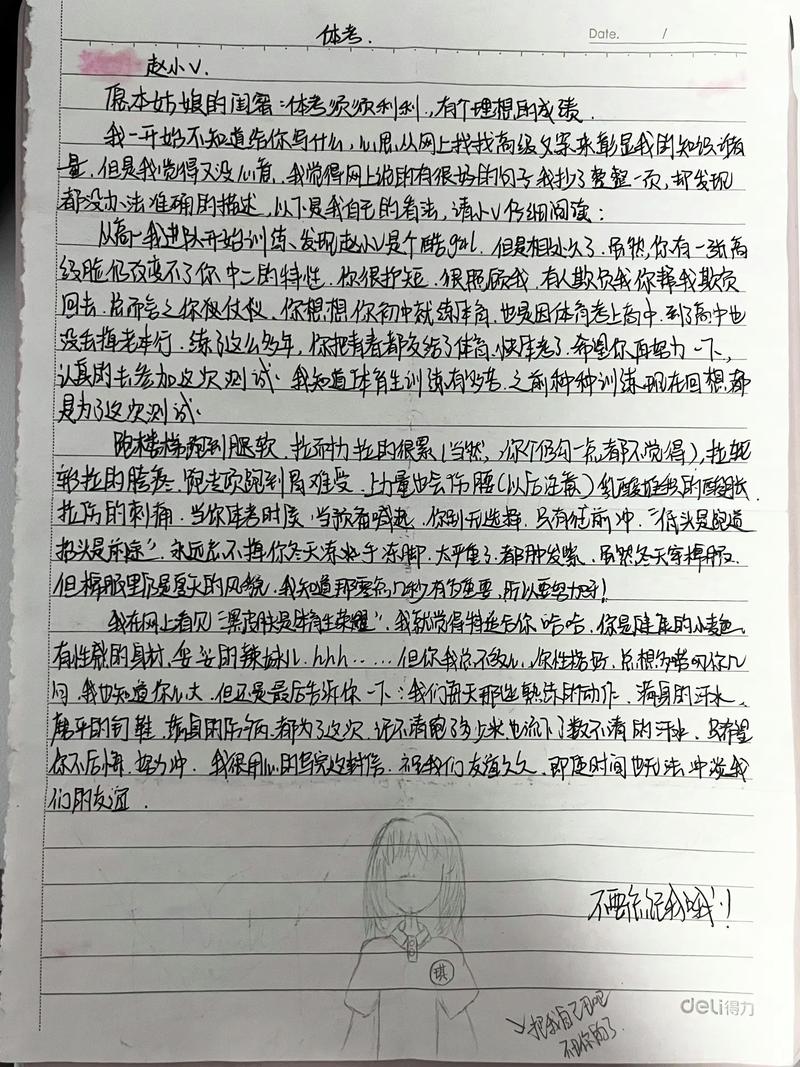 体考.
Date. /
赵小V.
愿本姑娘的闺蜜:体考顺顺利利,有个理想的成绩.
我一开始不知道给你写什么,心思从网上找找高级文案来彰显我的知识储备
量,但是我觉得又没心意,我觉得网上说的有很好的句子我抄了整整一页,却发现
都没办法准确的描述,以下是我自己的看法,请小V仔细阅读:
从高一我进队开始训练、发现赵小V是个酷girl.但是相处久了.虽然,你有一张高
级脸仍改变不了你中二的特性.你很护短.很照顾我.有人欺负我你帮我欺负
回去.总而言之你很仗仪.你想想你初中就练体育,也是因体育考上高中.到了高中也
没丢掉老本行.练了这么多年,你把青春都交给了体育.快体考了.希望你再努力一下,
认真的去参加这次测试.我知道体育生训练有多苦.之前种种训练现在回想都
是为了这次测试.
跑楼梯跑到腿软.拉耐力拉的很累(当然,你个仍勾一点都不觉得),拉
拉的.跑到难受.上力量也会伤腰(以后注意)乳酸堆积的酸胀.
拉伤的刺痛.当你体考时候,当预备喊起.你别无选择.只有往前冲."低头是跑道
抬头是前途".永远忘不掉你冬天冻手冻脚.太严重了.都肿发紫.虽然冬天穿棉服
但棉服里仍是夏天的风貌.我知道那零点几秒有多重要,所以要努力呀!
我在网上看见"黑皮肤是体育生荣耀".我就觉得特适合你哈哈.你是健康的小麦色
有性感的身材.妥妥的辣妹儿.hhh……但你我总不放心,你性格好.总想多嘱咐你几
句.我也知道你心大.但还是最后告诉你一下:我们每天那些熟练的动作.满身的汗水.
磨平的钉鞋.浑身的伤病.都为了这次.记不清跑了多少米也流下了数不清的汗水.只希望
你不后悔.努力冲.我很用心的写完这封信.祝我们友谊久久.即使时间也无法冲淡我
们的友谊.
不要忘记我哦!
琪
deli得力
把我自己画吧
不画你的了.